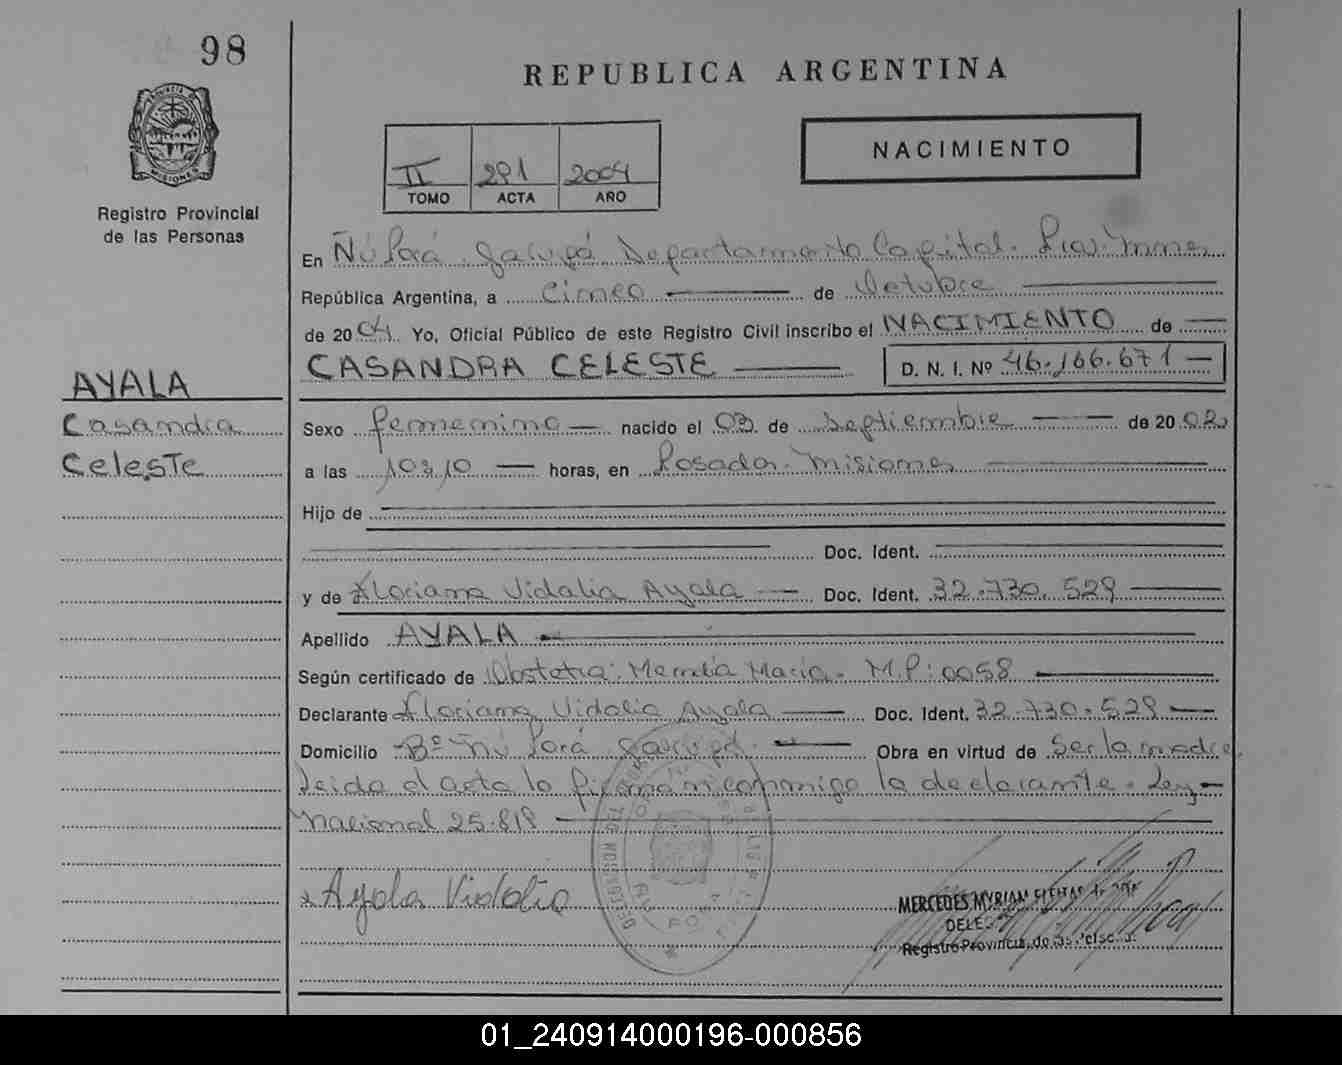 98
REPUBLICA ARGENTINA
PROVINCIA DE
MISIONES
Registro Provincial
de las Personas
II 291 2004
TOMO ACTA AÑO
NACIMIENTO
En Ñú Porá. Garupá Departamento Capital.
República Argentina, a Cinco de Octubre
de 2004 Yo, Oficial Público de este Registro Civil inscribo el NACIMIENTO de
CASANDRA CELESTE D. N. I. Nº 46.166.671
AYALA
Casandra
Celeste
Sexo femenino nacido el 03 de septiembre de 20
a las horas, en Posadas. Misiones
Hijo de
Doc. Ident.
y de Floriana Vidalia Ayala Doc. Ident. 32.730.529
Apellido AYALA
Según certificado de Obstetra: María. M.P: 0058
Declarante Floriana Vidalia Ayala Doc. Ident. 32.730.529
Domicilio Bº Ñú Porá. Garupá. Obra en virtud de Ser la madre
Leida el acta la firma conmigo la declarante. Ley
Nacional 25.818
Ayala Vidalia
MERCEDES MYRIAM
Registro
01_240914000196-000856